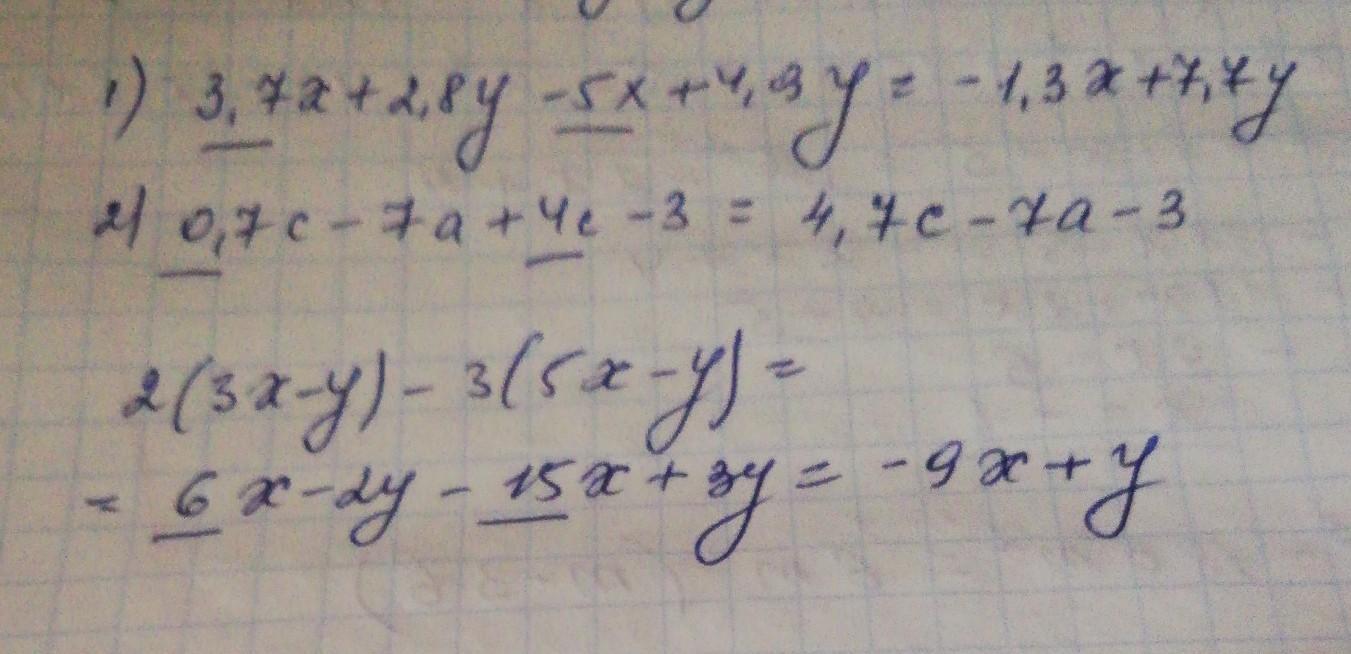 1) 3,7x + 2,8y - 5x + 4,9y = -1,3x + 7,7y
2) 0,7c - 7a + 4c - 3 = 4,7c - 7a - 3
2(3x-y) - 3(5x-y) =
= 6x - 2y - 15x + 3y = -9x + y